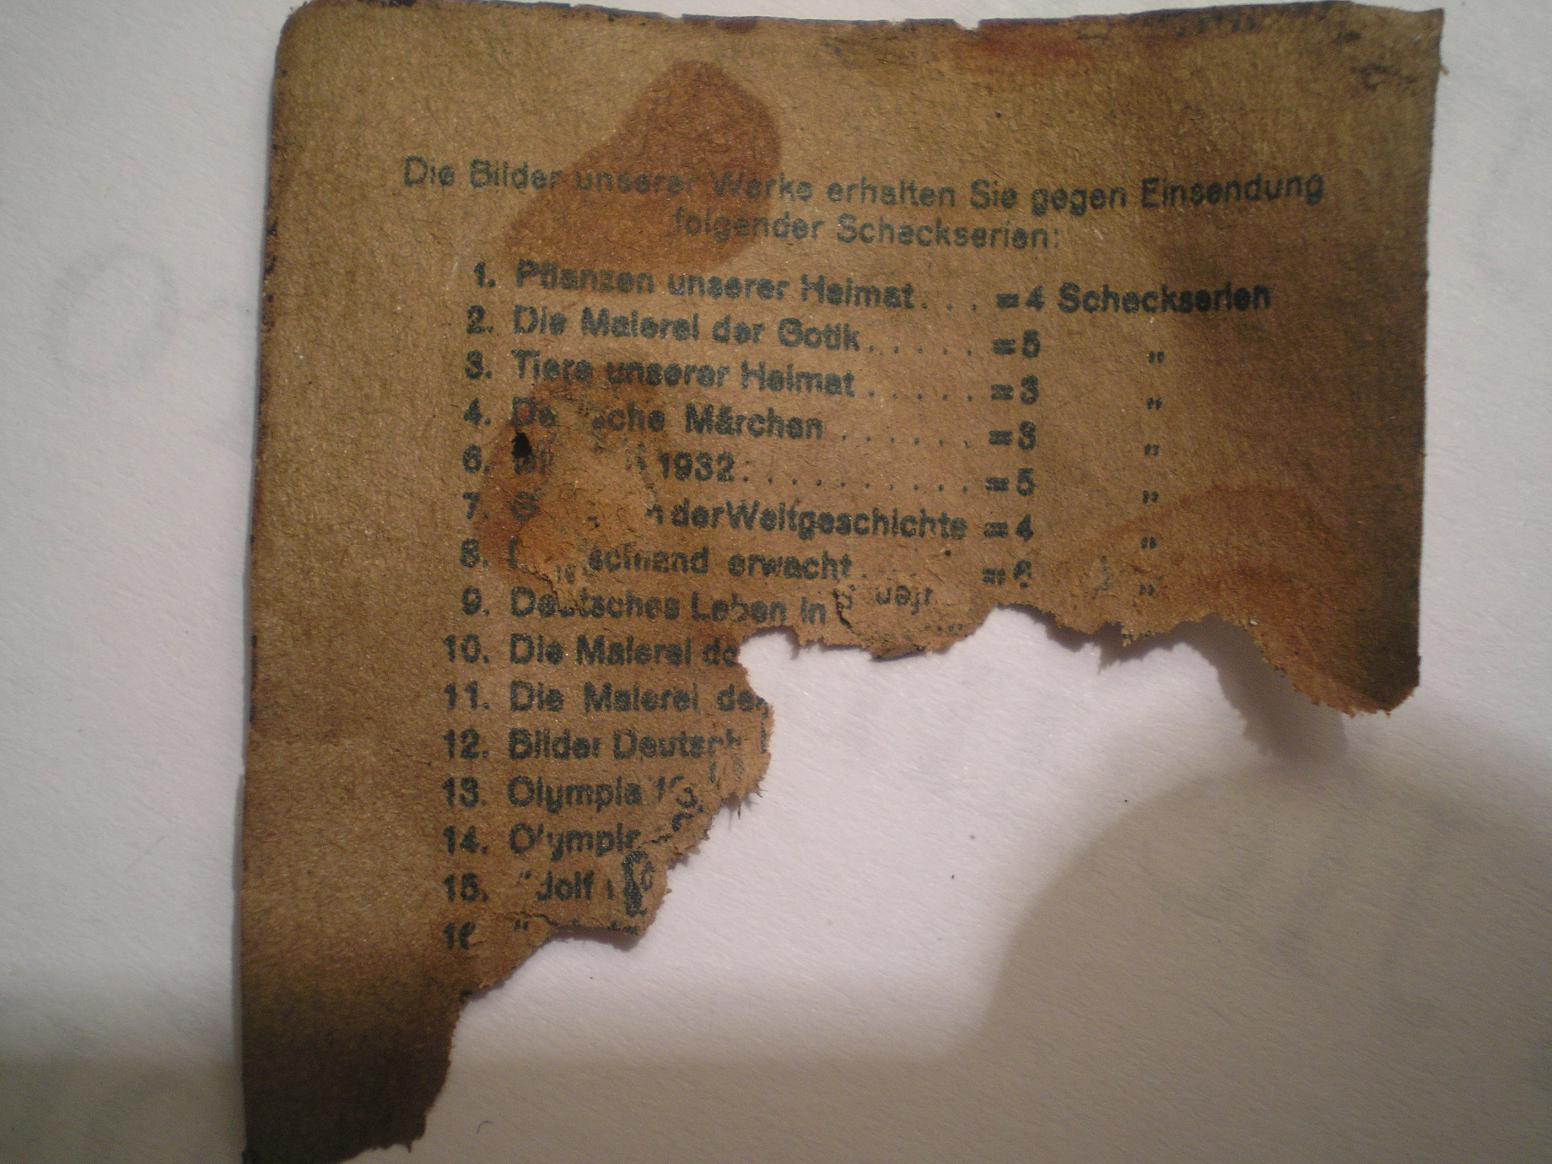 Die Bilder unserer Werke erhalten Sie gegen Einsendung
folgender Scheckserien:
1. Pflanzen unserer Heimat . . . =4 Scheckserien
2. Die Malerei der Gotik . . . . . . =5 "
3. Tiere unserer Heimat . . . . . . =3 "
4. Märchen . . . . . . . =3 "
6. 1932 . . . . . . . . . . . =5 "
7. der Weltgeschichte =4 "
8. erwacht . . . . . =6 "
9. Deutsches Leben in
10. Die Malerei
11. Die Malerei
12. Bilder
13. Olympia
14.
15.